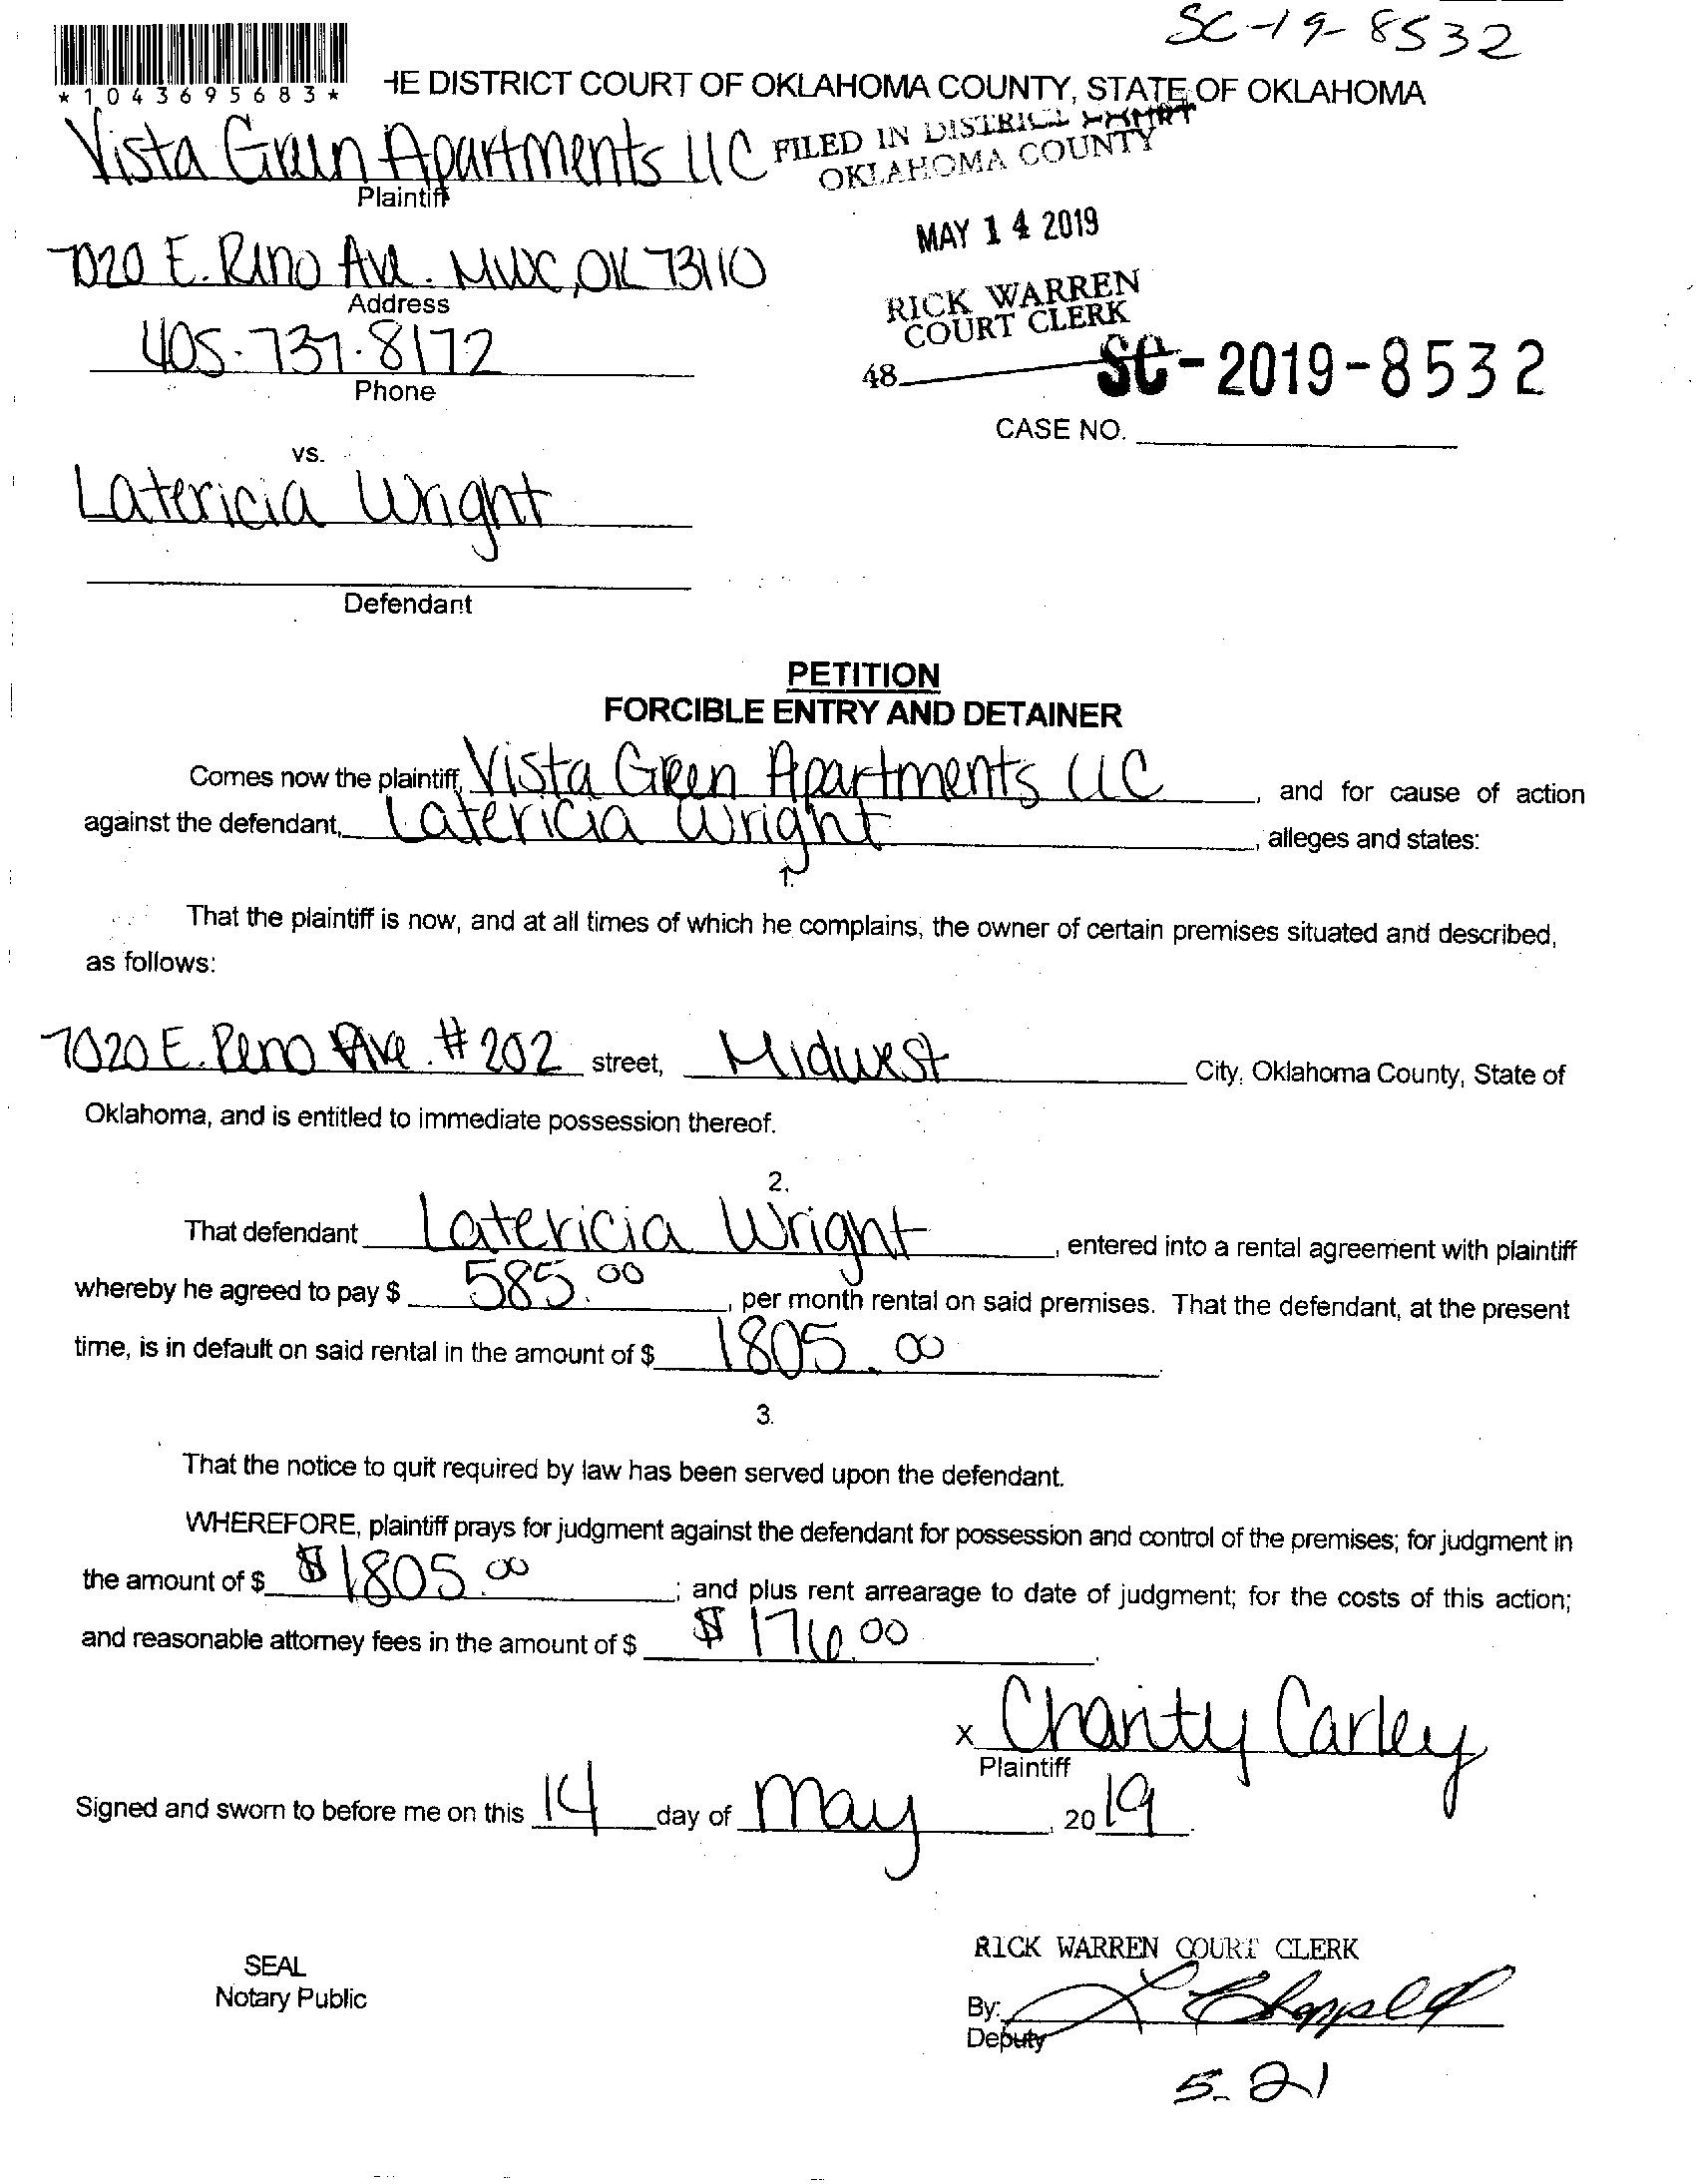 SC-19-8532
*1043695683*
HE DISTRICT COURT OF OKLAHOMA COUNTY, STATE OF OKLAHOMA
Vista Green Apartments LLC
Plaintiff
FILED IN DISTRICT COURT
OKLAHOMA COUNTY
MAY 14 2019
RICK WARREN
COURT CLERK
48
7020 E. Reno Ave. MWC, OK 73110
Address
405-737-8172
Phone
SC-2019-8532
CASE NO.
vs.
Latericia Wright
Defendant
PETITION
FORCIBLE ENTRY AND DETAINER
Comes now the plaintiff, Vista Green Apartments LLC, and for cause of action
against the defendant, Latericia Wright, alleges and states:
1.
That the plaintiff is now, and at all times of which he complains, the owner of certain premises situated and described,
as follows:
7020 E. Reno Ave. #202 street, Midwest City, Oklahoma County, State of
Oklahoma, and is entitled to immediate possession thereof.
2.
That defendant Latericia Wright, entered into a rental agreement with plaintiff
whereby he agreed to pay $ 585.00, per month rental on said premises. That the defendant, at the present
time, is in default on said rental in the amount of $ 1805.00.
3.
That the notice to quit required by law has been served upon the defendant.
WHEREFORE, plaintiff prays for judgment against the defendant for possession and control of the premises; for judgment in
the amount of $ $1805.00; and plus rent arrearage to date of judgment; for the costs of this action;
and reasonable attorney fees in the amount of $ $176.00.
x Charity Carley
Plaintiff
Signed and sworn to before me on this 14 day of May, 2019.
SEAL
Notary Public
RICK WARREN COURT CLERK
By:
Deputy
5-21